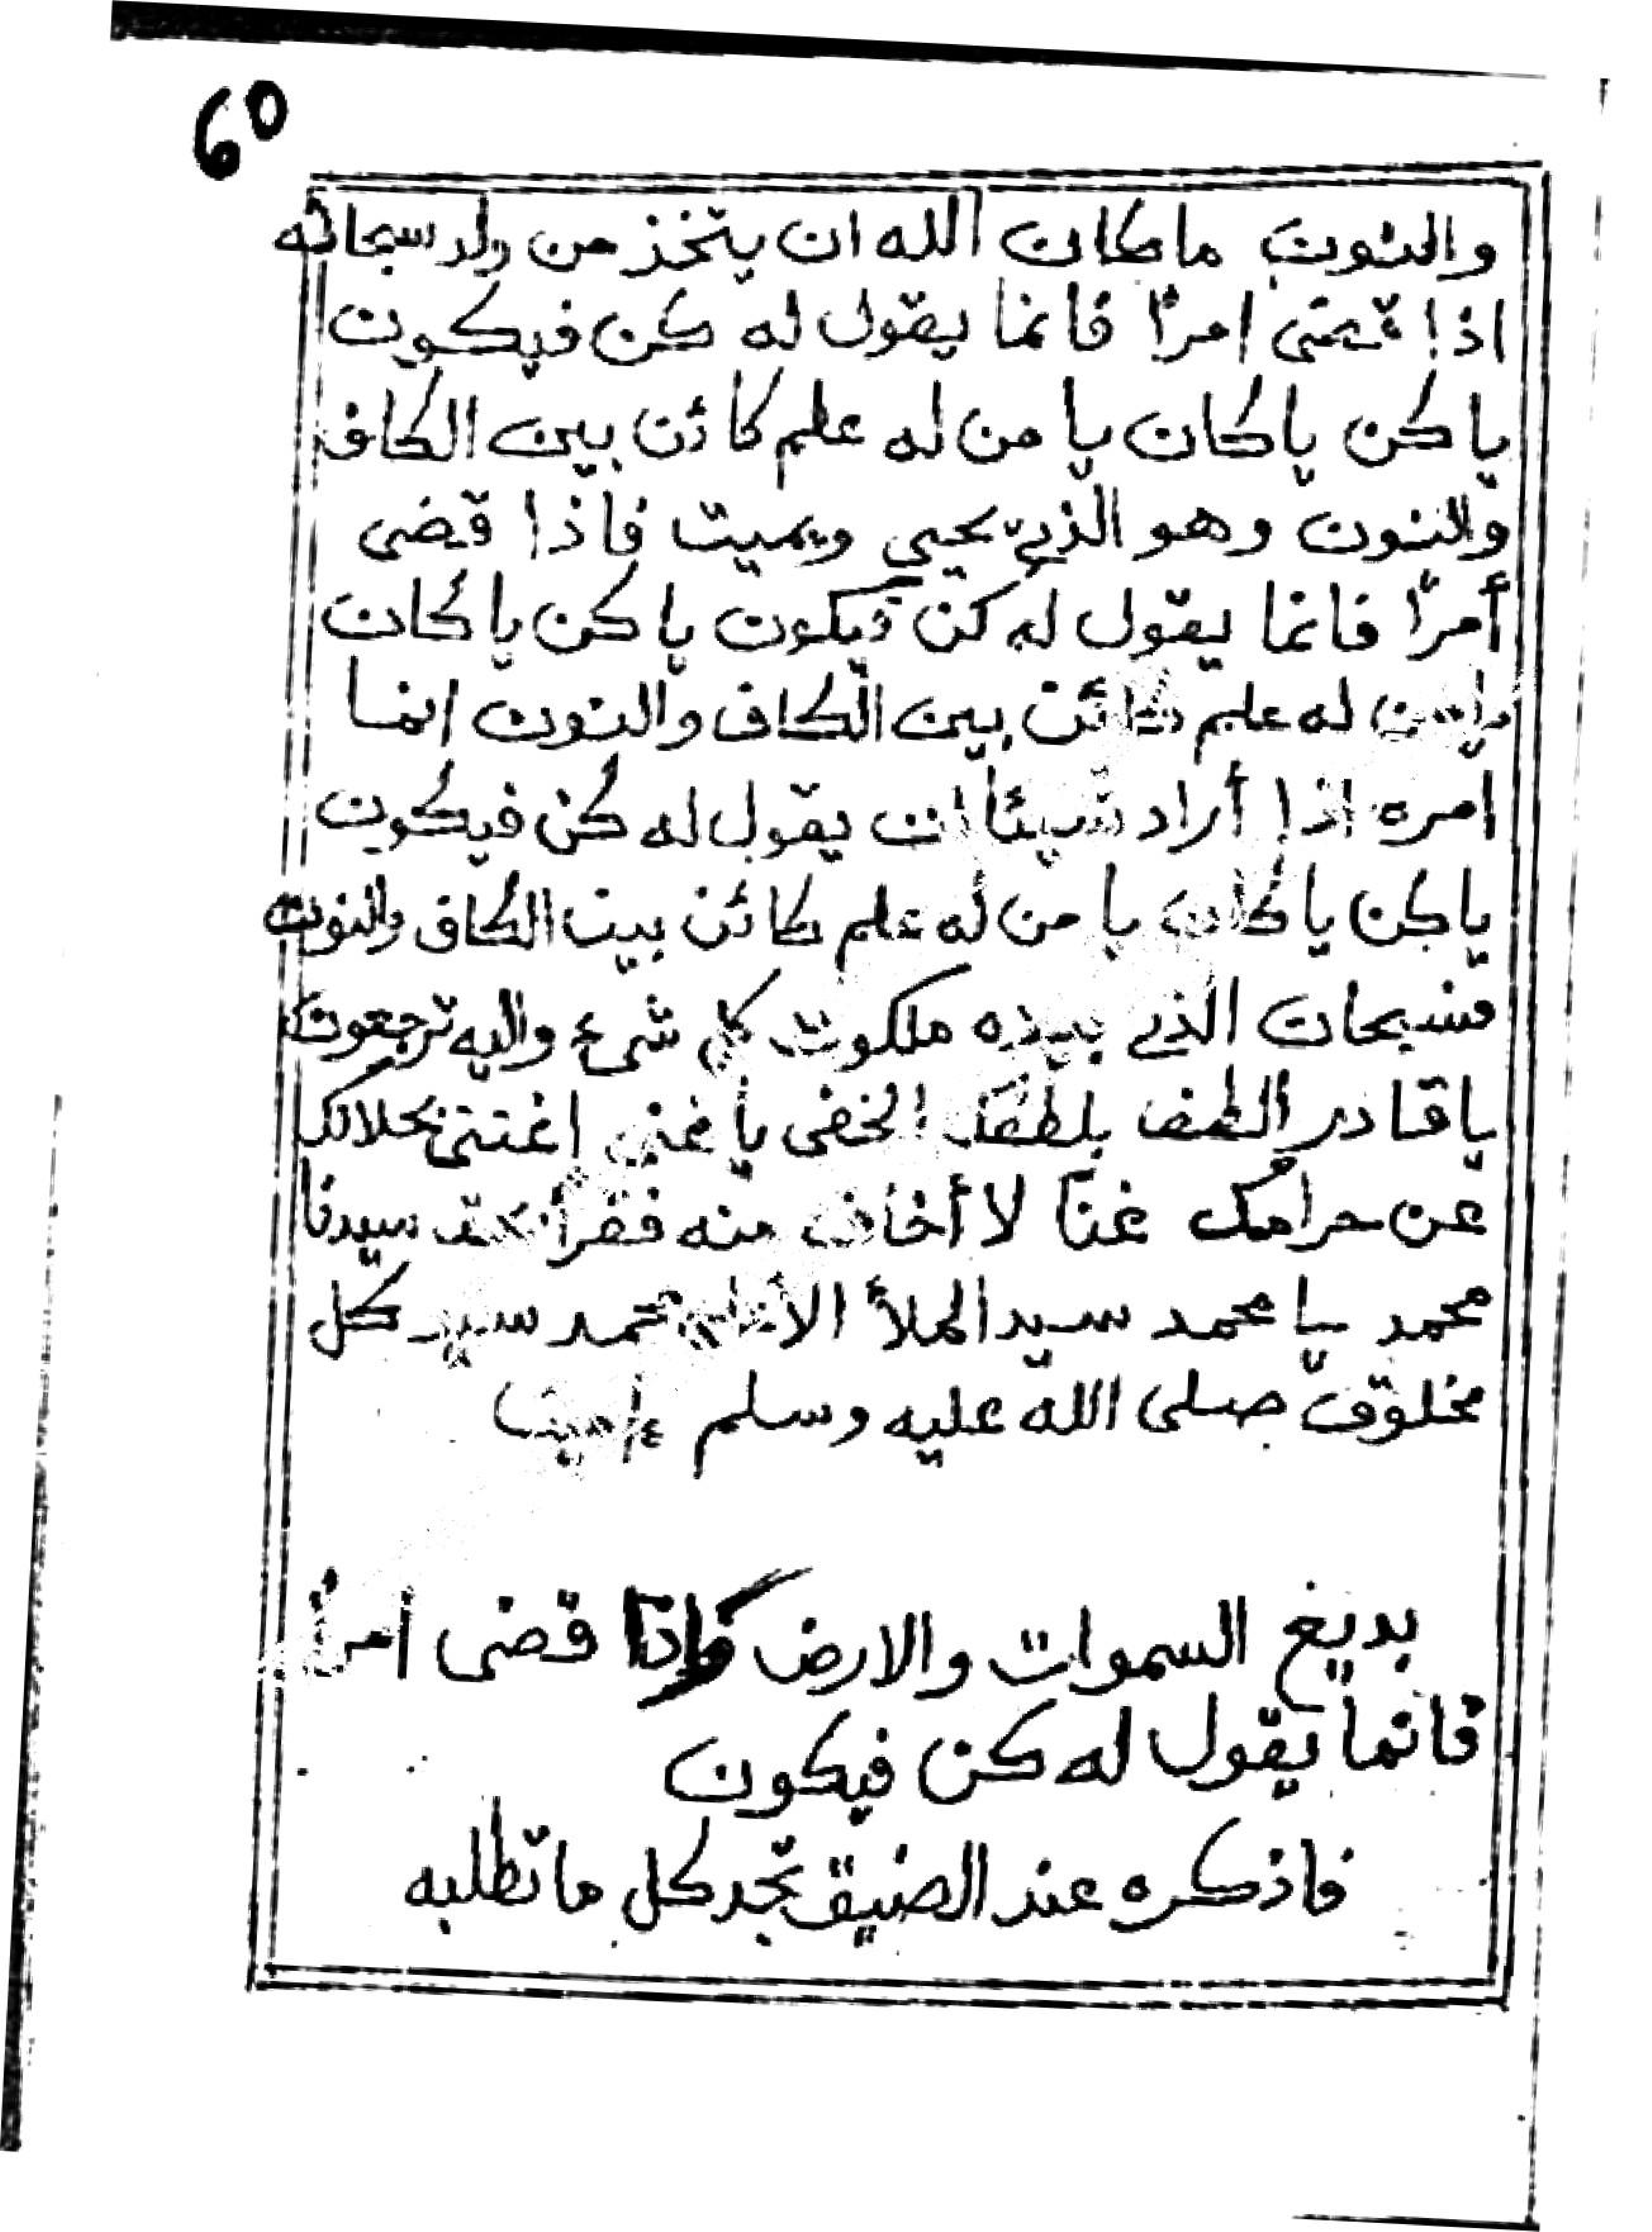 60
والنون ما كان الله ان يتخذ من ولد سبحانه
اذا قضى امرًا فانما يقول له كن فيكون
يا كن يا كان يا من له علم كائن بين الكاف
والنون وهو الذي يحيي ويميت فاذا قضى
أمرًا فانما يقول له كن فيكون يا كن يا كان
يا من له علم كائن بين الكاف والنون انما
امره اذا أراد شيئا ان يقول له كُن فيكون
يا كن يا كان يا من له علم كائن بين الكاف والنون
فسبحان الذي بيده ملكوت كل شيء واليه ترجعون
يا قادر الطف بلطفك الخفى يا غني اغننى بحلالك
عن حرامك غنًا لا أخاف منه فقرًا سيدنا
محمد يا محمد سيد الملأ محمد سيد كل
مخلوق صلى الله عليه وسلم
بديع السموات والارض فاذا قضى امرًا
فانما يقول له كن فيكون
فاذكره عند الضيق تجد كل ما تطلبه